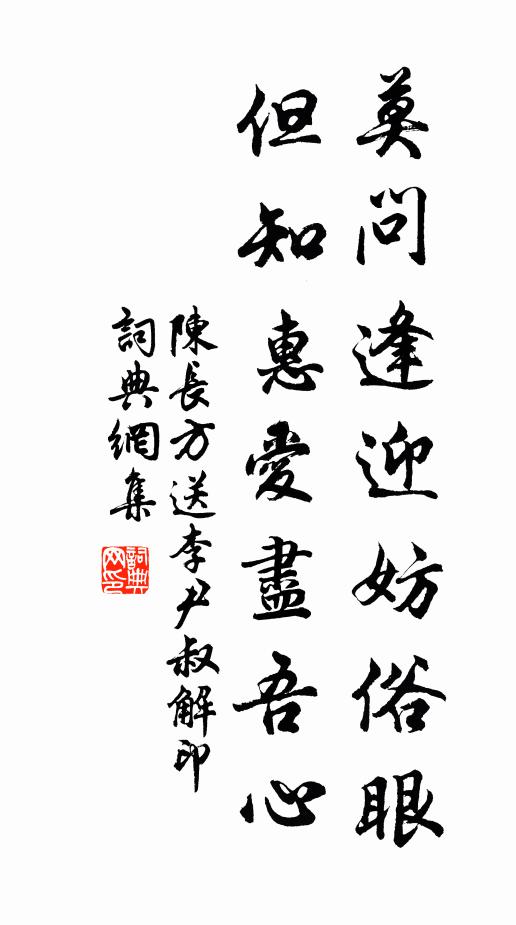 莫問逢迎妨俗眼
但知惠愛盡吾心
陳長方送李尹叔解印
詞典網集
詞典网印